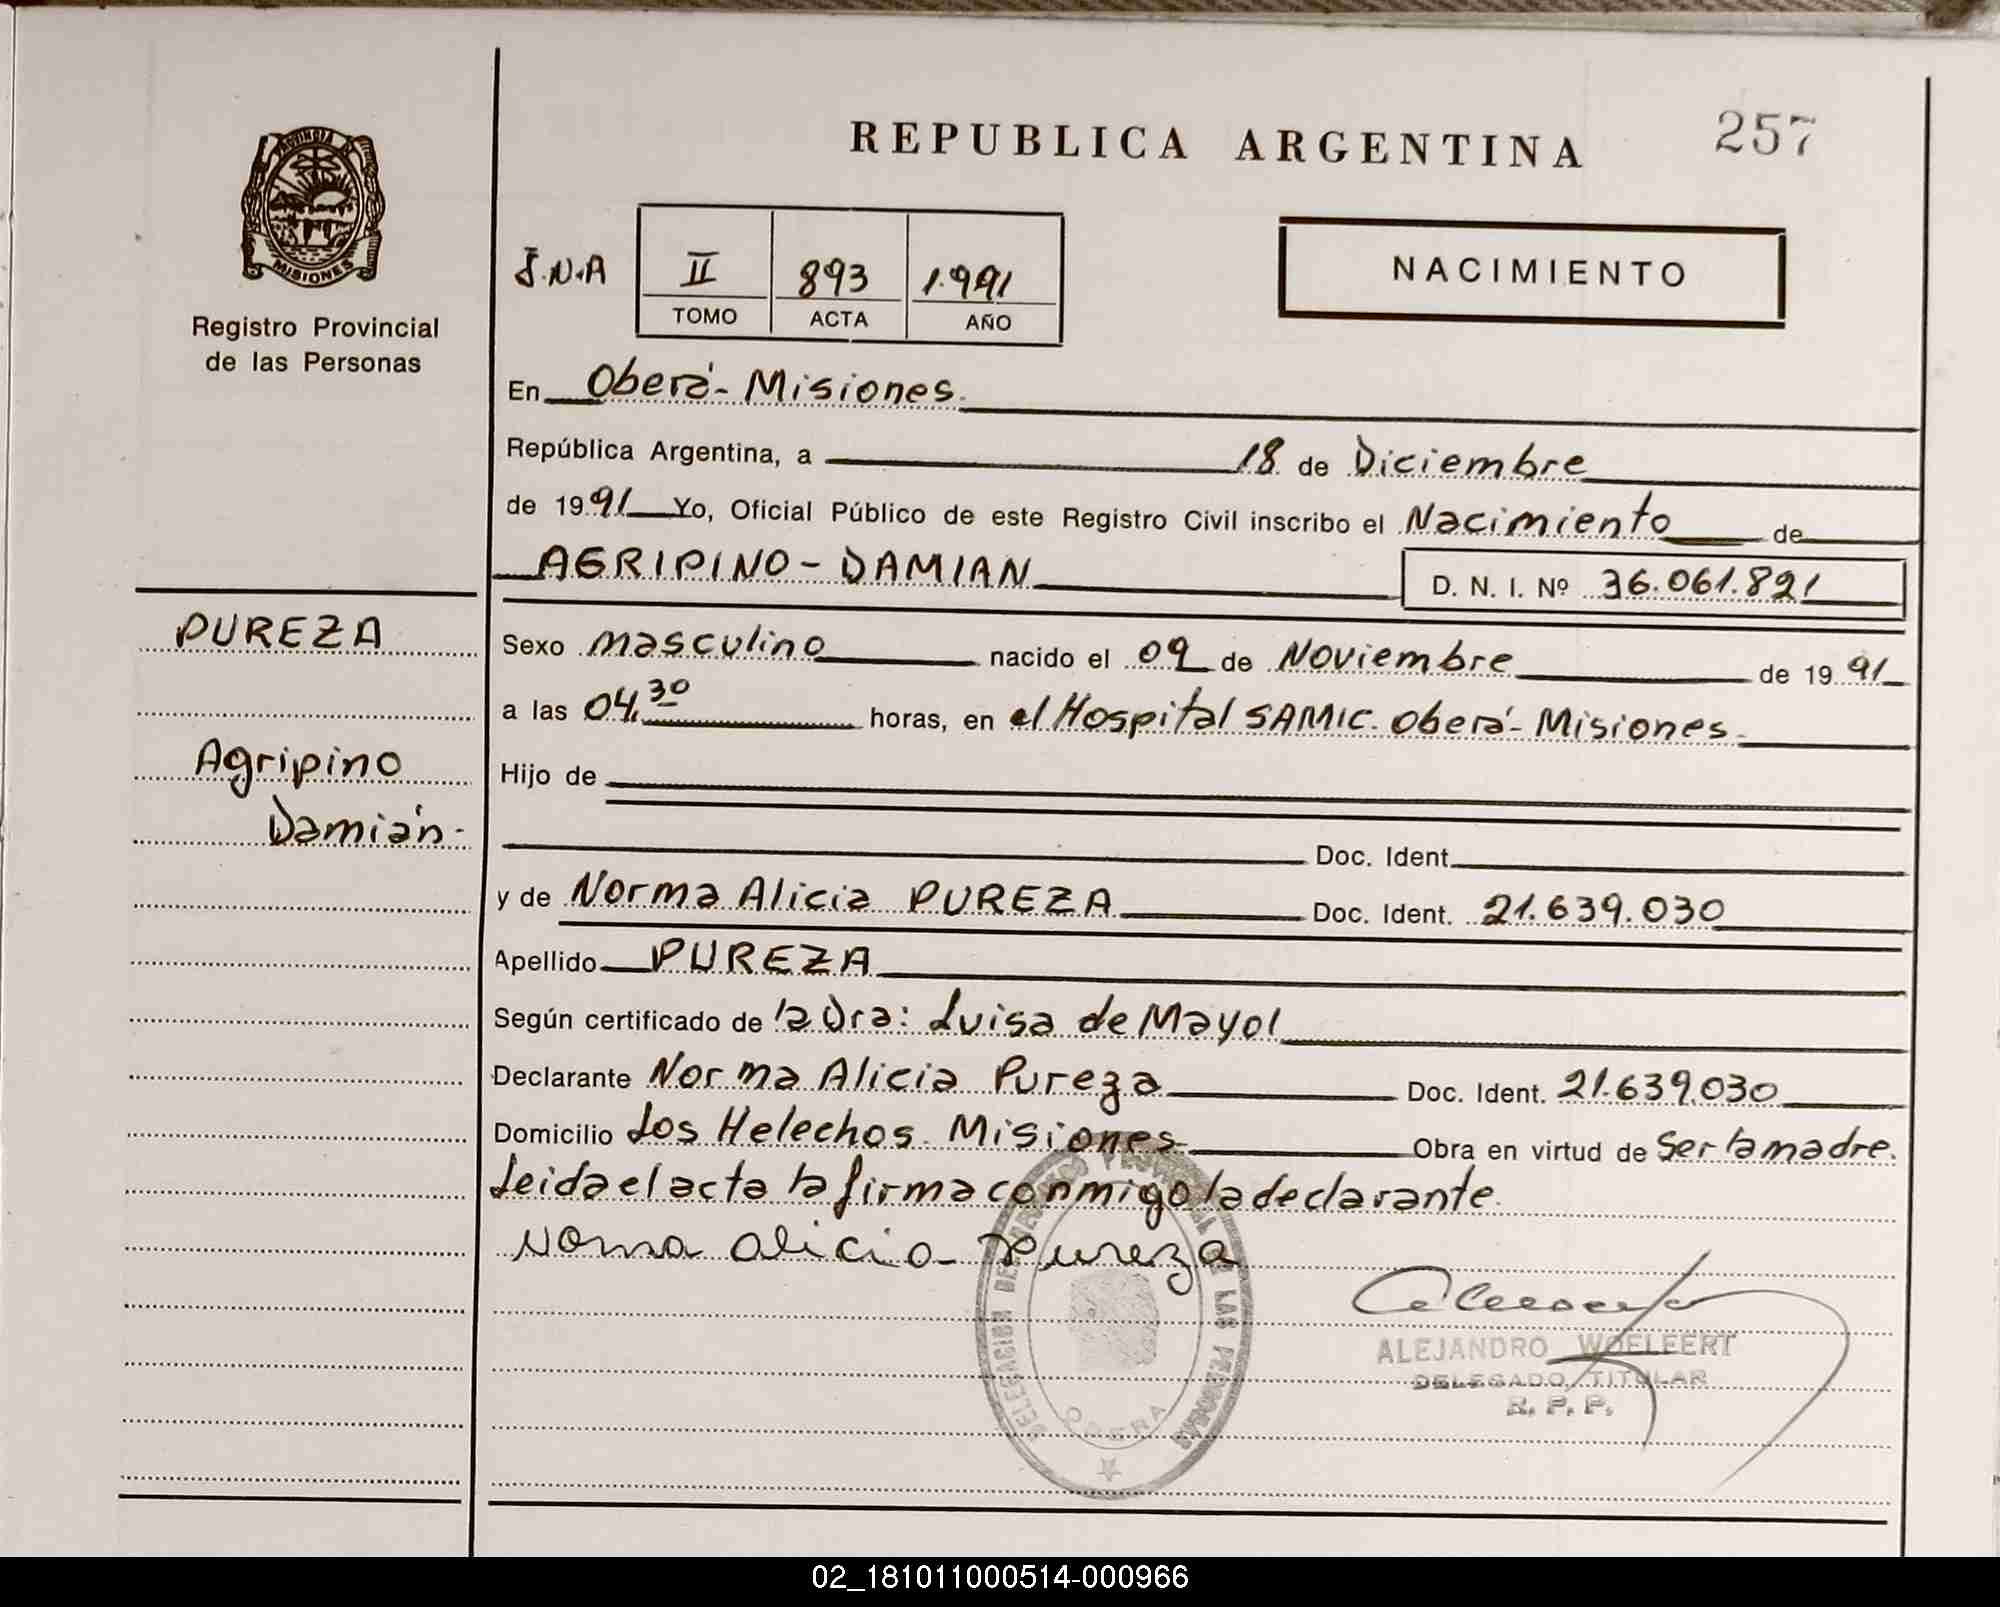 REPUBLICA ARGENTINA
257
PROVINCIA
MISIONES
Registro Provincial
de las Personas
PUREZA
Agripino
Damián.-
I.N.A
II
893
1.991
TOMO
ACTA
AÑO
NACIMIENTO
En Oberá- Misiones.
República Argentina, a 18 de Diciembre
de 1991 Yo, Oficial Público de este Registro Civil inscribo el Nacimiento de
AGRIPINO-DAMIAN D. N. I. Nº 36.061.821
Sexo masculino nacido el 09 de Noviembre de 1991
a las 04,30 horas, en el Hospital SAMIC. Oberá- Misiones.
Hijo de
Doc. Ident.
y de Norma Alicia PUREZA Doc. Ident. 21.639.030
Apellido PUREZA
Según certificado de la Dra: Luisa de Mayol
Declarante Norma Alicia Pureza Doc. Ident. 21.639.030
Domicilio Los Helechos. Misiones. Obra en virtud de Ser la madre.
Leida el acta la firma conmigo la declarante.
Norma alicia Pureza
DELEGACION DEL REGISTRO PROVINCIAL DE LAS PERSONAS
OBERA
ALEJANDRO WOELFERT
DELEGADO TITULAR
R. P. P.
02_181011000514-000966